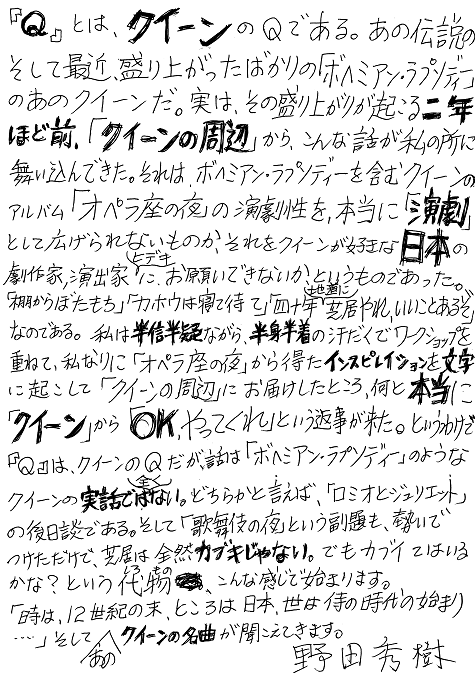 『Q』とは、クイーンのQである。あの伝説の
そして最近、盛り上がったばかりの「ボヘミアン・ラプソディ」
のあのクイーンだ。実は、その盛り上がりが起こる二年
ほど前、「クイーンの周辺」から、こんな話が私の所に
舞い込んできた。それは、ボヘミアン・ラプソディーを含むクイーンの
アルバム「オペラ座の夜」の演劇性を、本当に「演劇」
として広げられないものか、それをクイーンが好きな日本の
劇作家、演出家ヒデキに、お願いできないか、というものであった。
「棚からぼたもち」「カホウは寝て待て」「四十年地道に芝居やれ、いいことあるぞ」
なのである。私は半信半疑ながら、半身半着の汗だくでワークショップを
重ねて、私なりに「オペラ座の夜」から得たインスピレイションを文字
に起こして「クイーンの周辺」にお届けしたところ、何と本当に
「クイーン」から「OK、やってくれ」という返事が来た。というわけで
『Q』は、クイーンのQだが、話は「ボヘミアン・ラプソディー」のような
クイーンの実話では全くない。どちらかと言えば、「ロミオとジュリエット」
の後日談である。そして「歌舞伎の夜」という副題も、勢いで
つけただけで、芝居は全然カブキじゃない。でもカブイてはいる
かな?という代物、こんな感じで始まります。
「時は、12世紀の末、ところは日本、世は侍の時代の始まり
……」そしてあのクイーンの名曲が聞こえてきます。
野田秀樹